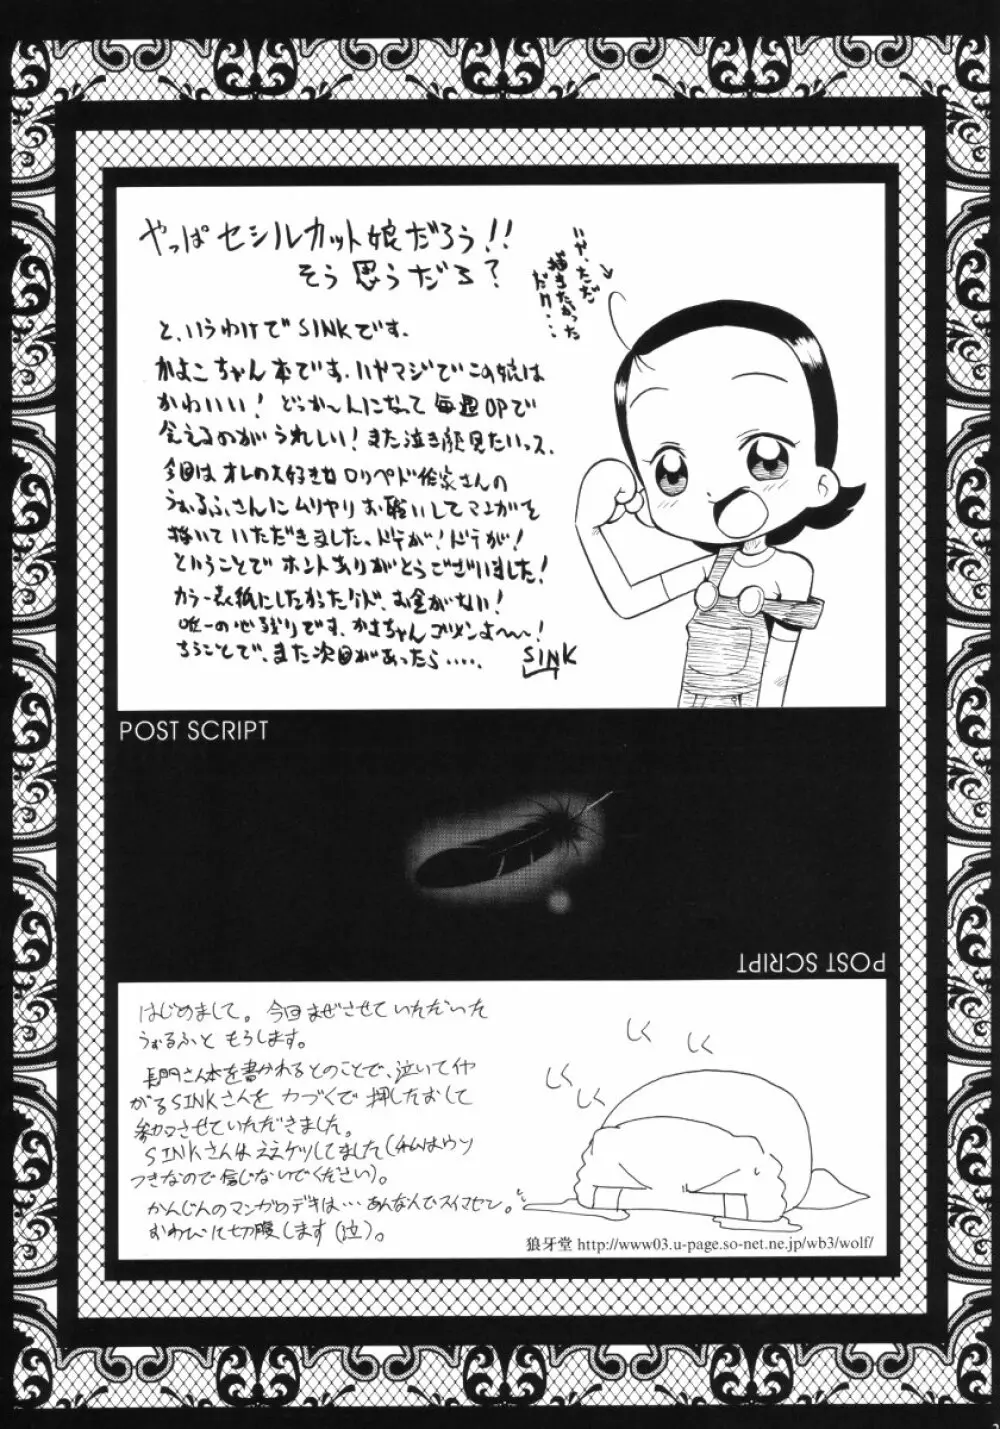 やっぱセシルカット娘だろう!!
そう思うだろ？
いや、ただ
描きたかった
だけ…
と、いうわけでSINKです。
かよこちゃん本です。いやマジでこの娘は
かわいい！どっか〜人になって毎週OPで
会えるのがうれしい！また泣き顔見たいっス。
今回はオレの大好きなロリペド作家さんの
うぉるふさんにムリヤリお願いしてマンガを
描いていただきました。ドテが！ドテが！
ということでホントありがとうございました！
カラー表紙にしたかったケド、お金がない！
唯一の心残りです。かよちゃんゴメンよ〜〜！
ちうことで、また次回があったら‥‥。
SINK
POST SCRIPT
POST SCRIPT
はじめまして。今回まぜさせていただいた
うぉるふともうします。
長門さん本を書かれるとのことで、泣いてイヤ
がるSINKさんを力づくで押したおして
参加させていただきました。
SINKさんはええケツしてました（私はウソ
つきなので信じないでください）。
かんじんのマンガのデキは…あんなんでスイマセン。
おわびに切腹します（泣）。
しく
しく
しく
しく
狼牙堂 http://www03.u-page.so-net.ne.jp/wb3/wolf/